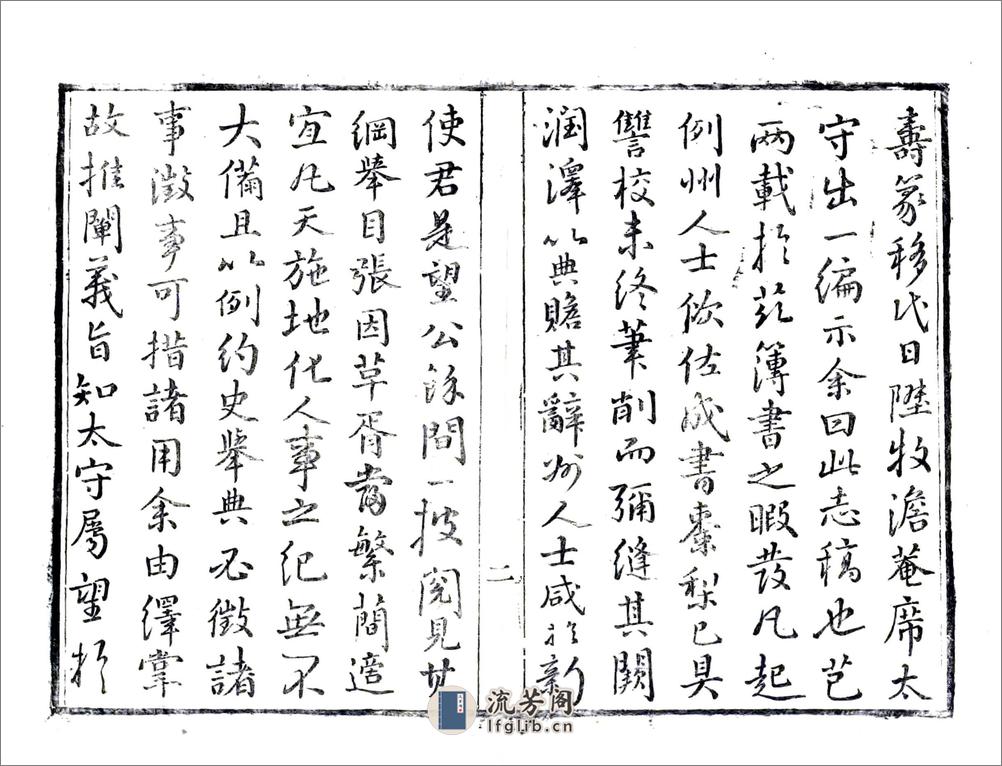 壽篆移代日陞牧澹菴席太
守出一編示余曰此志稿也芑
兩載於茲簿書之暇發凡起
例州人士佽佐成書棗梨已具
讐校未終筆削而彌縫其闕
潤澤以典贍其辭州人士咸於新
二
使君是望公餘間一披閱見其
綱舉目張因革胥當繁簡適
宜凡天施地化人事之紀無不
大備且以例約史舉典必徵諸
事徵事可措諸用余由繹掌
故推闡義旨知太守屬望於
流芳阁
lfglib.cn